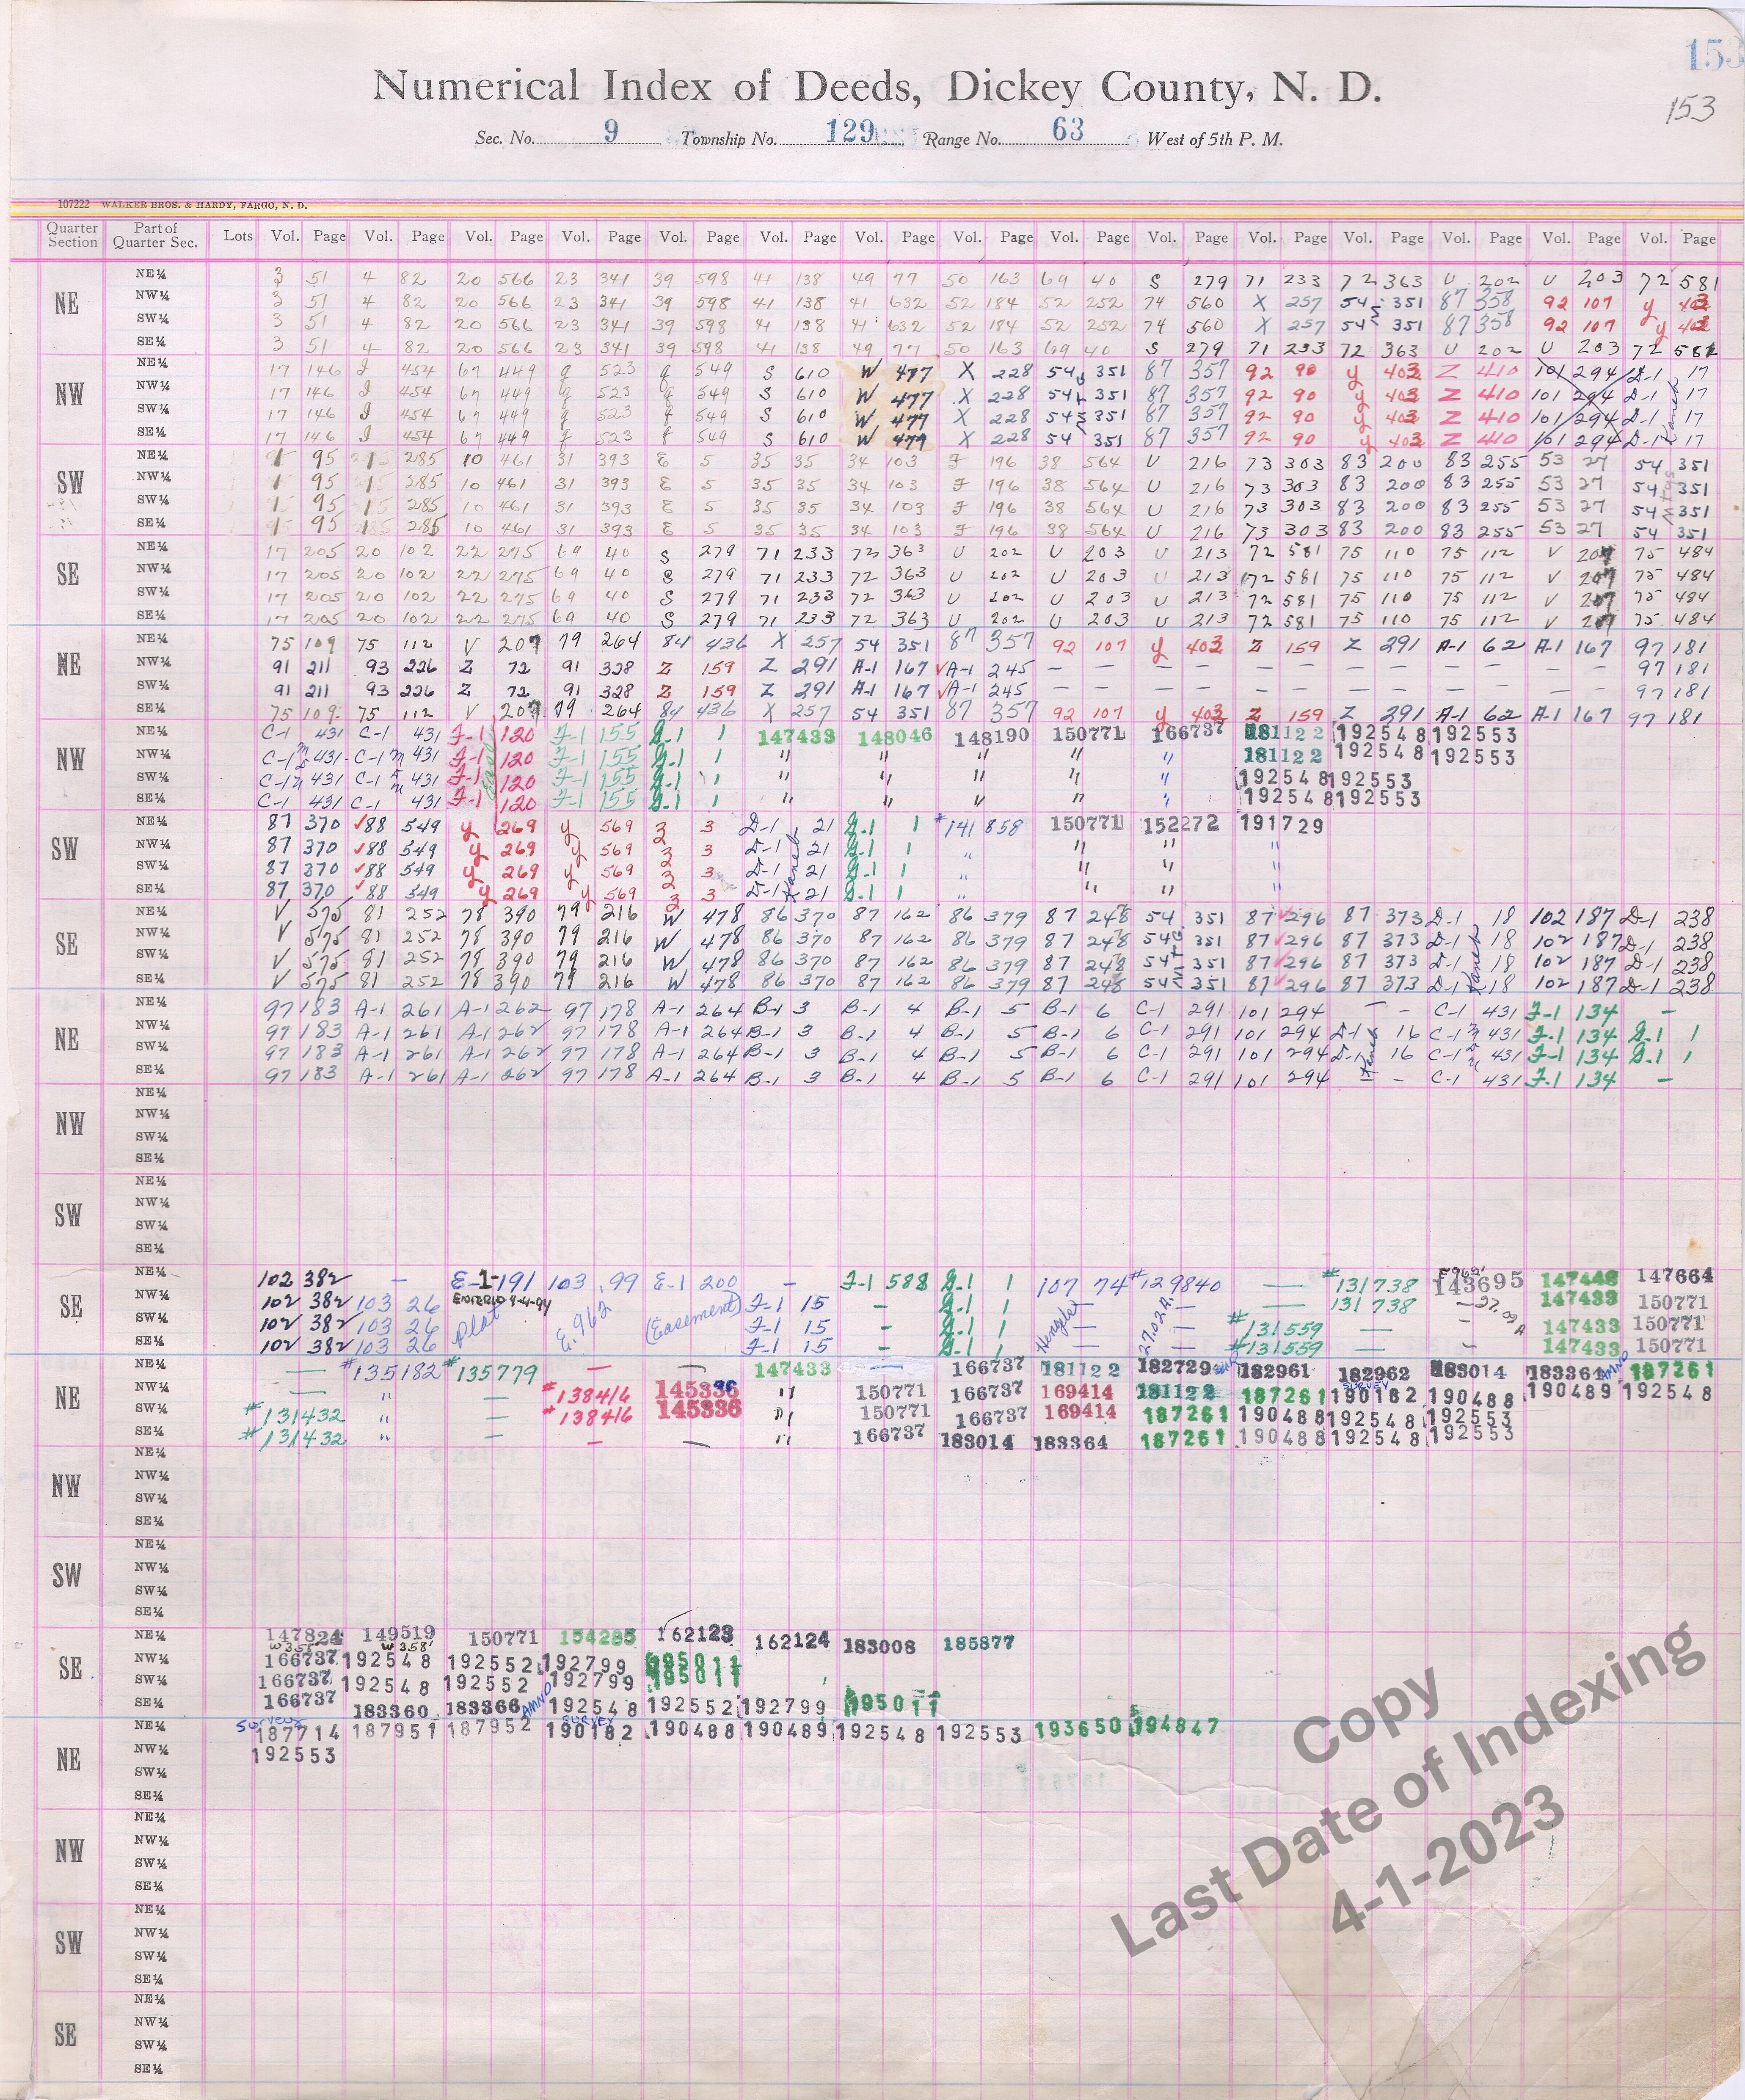 153
Numerical Index of Deeds, Dickey County, N. D.
153
Sec. No. 9 Township No. 129 Range No. 63 West of 5th P. M.
107222 WALKER BROS. & HARDY, FARGO, N. D.
Quarter Section Part of Quarter Sec. Lots Vol. Page Vol. Page Vol. Page Vol. Page Vol. Page Vol. Page Vol. Page Vol. Page Vol. Page Vol. Page Vol. Page Vol. Page Vol. Page Vol. Page Vol. Page
NE NE¼ 3 51 4 82 20 566 23 341 39 598 41 138 49 77 50 163 69 40 S 279 71 233 72 363 U 202 U 203 72 581
NW¼ 3 51 4 82 20 566 23 341 39 598 41 138 41 632 52 184 52 252 74 560 X 257 54 351 87 358 92 107 y 403
SW¼ 3 51 4 82 20 566 23 341 39 598 41 138 41 632 52 184 52 252 74 560 X 257 54 351 87 358 92 107 y 403
SE¼ 3 51 4 82 20 566 23 341 39 598 41 138 49 77 50 163 69 40 S 279 71 233 72 363 U 202 U 203 72 581
NW NE¼ 17 146 I 454 67 449 q 523 q 549 S 610 W 477 X 228 54 351 87 357 92 90 y 403 Z 410 101 294 D-1 17
NW¼ 17 146 I 454 67 449 q 523 q 549 S 610 W 477 X 228 54 351 87 357 92 90 y 403 Z 410 101 294 D-1 17
SW¼ 17 146 I 454 67 449 q 523 q 549 S 610 W 477 X 228 54 351 87 357 92 90 y 403 Z 410 101 294 D-1 17
SE¼ 17 146 I 454 67 449 q 523 q 549 S 610 W 477 X 228 54 351 87 357 92 90 y 403 Z 410 101 294 D-1 17
SW NE¼ 1 95 285 10 461 31 393 E 5 35 35 34 103 F 196 38 564 U 216 73 303 83 200 83 255 53 27 54 351
NW¼ 1 95 285 10 461 31 393 E 5 35 35 34 103 F 196 38 564 U 216 73 303 83 200 83 255 53 27 54 351
SW¼ 1 95 285 10 461 31 393 E 5 35 35 34 103 F 196 38 564 U 216 73 303 83 200 83 255 53 27 54 351
SE¼ 1 95 285 10 461 31 393 E 5 35 35 34 103 F 196 38 564 U 216 73 303 83 200 83 255 53 27 54 351
SE NE¼ 17 205 20 102 22 275 69 40 S 279 71 233 72 363 U 202 U 203 U 213 72 581 75 110 75 112 V 207 75 484
NW¼ 17 205 20 102 22 275 69 40 S 279 71 233 72 363 U 202 U 203 U 213 72 581 75 110 75 112 V 207 75 484
SW¼ 17 205 20 102 22 275 69 40 S 279 71 233 72 363 U 202 U 203 U 213 72 581 75 110 75 112 V 207 75 484
SE¼ 17 205 20 102 22 275 69 40 S 279 71 233 72 363 U 202 U 203 U 213 72 581 75 110 75 112 V 207 75 484
NE NE¼ 75 109 75 112 V 207 79 264 84 436 X 257 54 351 87 357 92 107 y 403 Z 159 Z 291 A-1 62 A-1 167 97 181
NW¼ 91 211 93 226 Z 72 91 328 Z 159 Z 291 A-1 167 A-1 245 — — — — — — 97 181
SW¼ 91 211 93 226 Z 72 91 328 Z 159 Z 291 A-1 167 A-1 245 — — — — — — 97 181
SE¼ 75 109 75 112 V 207 79 264 84 436 X 257 54 351 87 357 92 107 y 403 Z 159 Z 291 A-1 62 A-1 167 97 181
NW NE¼ C-1 431 C-1 431 F-1 120 F-1 155 G-1 1 147433 148046 148190 150771 166737 181122 192548 192553
NW¼ C-1 431 C-1 431 F-1 120 F-1 155 G-1 1 " " " " " 181122 192548 192553
SW¼ C-1 431 C-1 431 F-1 120 F-1 155 G-1 1 " " " " " 192548 192553
SE¼ C-1 431 C-1 431 F-1 120 F-1 155 G-1 1 " " " " " 192548 192553
SW NE¼ 87 370 88 549 y 269 y 569 3 3 D-1 21 G-1 1 #141858 150771 152272 191729
NW¼ 87 370 88 549 y 269 y 569 3 3 D-1 21 G-1 1 " " " "
SW¼ 87 370 88 549 y 269 y 569 3 3 D-1 21 G-1 1 " " " "
SE¼ 87 370 88 549 y 269 y 569 3 3 D-1 21 G-1 1 " " " "
SE NE¼ V 575 81 252 78 390 79 216 W 478 86 370 87 162 86 379 87 248 54 351 87 296 87 373 D-1 18 102 187 D-1 238
NW¼ V 575 81 252 78 390 79 216 W 478 86 370 87 162 86 379 87 248 54 351 87 296 87 373 D-1 18 102 187 D-1 238
SW¼ V 575 81 252 78 390 79 216 W 478 86 370 87 162 86 379 87 248 54 351 87 296 87 373 D-1 18 102 187 D-1 238
SE¼ V 575 81 252 78 390 79 216 W 478 86 370 87 162 86 379 87 248 54 351 87 296 87 373 D-1 18 102 187 D-1 238
NE NE¼ 97 183 A-1 261 A-1 262 97 178 A-1 264 B-1 3 B-1 4 B-1 5 B-1 6 C-1 291 101 294 — — C-1 431 F-1 134 —
NW¼ 97 183 A-1 261 A-1 262 97 178 A-1 264 B-1 3 B-1 4 B-1 5 B-1 6 C-1 291 101 294 D-1 16 C-1 431 F-1 134 G-1 1
SW¼ 97 183 A-1 261 A-1 262 97 178 A-1 264 B-1 3 B-1 4 B-1 5 B-1 6 C-1 291 101 294 D-1 16 C-1 431 F-1 134 G-1 1
SE¼ 97 183 A-1 261 A-1 262 97 178 A-1 264 B-1 3 B-1 4 B-1 5 B-1 6 C-1 291 101 294 — C-1 431 F-1 134 —
NW NE¼
NW¼
SW¼
SE¼
SW NE¼
NW¼
SW¼
SE¼
SE NE¼ 102 382 — E-1-191 103 99 E-1 200 — F-1 588 G-1 1 107 74 #129840 — #131738 143695 147448 147664
NW¼ 102 382 103 26 Plat E-962 (Easement) F-1 15 — G-1 1 — — — 131738 — 147433 150771
SW¼ 102 382 103 26 F-1 15 — G-1 1 — — #131559 — — 147433 150771
SE¼ 102 382 103 26 F-1 15 — G-1 1 — — #131559 — — 147433 150771
NE NE¼ — #135182 #135779 — — 147433 — 166737 181122 182729 182961 182962 183014 183364 AMND 187261
NW¼ — " — #138416 145336 " 150771 166737 169414 181122 187261 SURVEY 190182 190488 190489 192548
SW¼ #131432 " — #138416 145336 " 150771 166737 169414 187261 190488 192548 192553
SE¼ #131432 " — — — " 166737 183014 183364 187261 190488 192548 192553
NW NE¼
NW¼
SW¼
SE¼
SW NE¼
NW¼
SW¼
SE¼
SE NE¼ 147824 149519 150771 154285 162123 162124 183008 185877
NW¼ 166737 192548 192552 192799 195011
SW¼ 166737 192548 192552 192799 195011
SE¼ 166737 183360 183366 AMND 192548 192552 192799 195011
NE NE¼ SURVEY 187714 187951 187952 SURVEY 190182 190488 190489 192548 192553 193650 194847
NW¼ 192553
SW¼
SE¼
NW NE¼
NW¼
SW¼
SE¼
SW NE¼
NW¼
SW¼
SE¼
SE NE¼
NW¼
SW¼
SE¼
Copy
Last Date of Indexing
4-1-2023